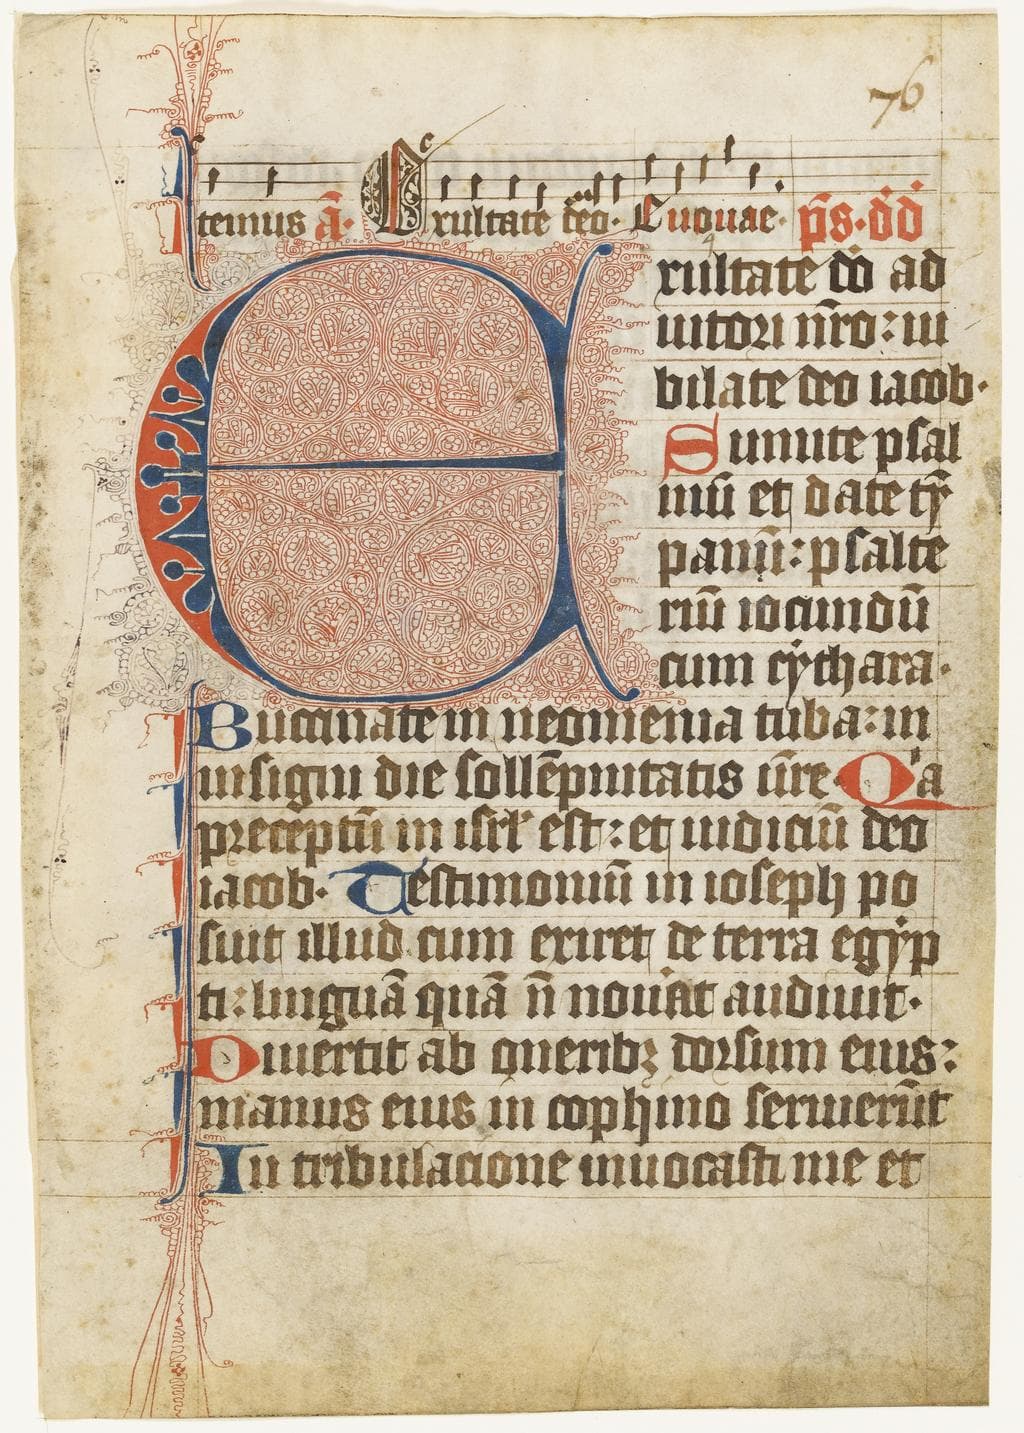 76
temus a̅· Exultate deo· Euouae· p̅s·dd
Exultate do ad
iutori nr̅o: iu
bilate deo iacob·
Sumite psal
mu̅ et date ty̅
panu̅: psalte
riu̅ iocundu̅
cum cythara·
Buccinate in neomenia tuba: in
insigni die solle̅pnitatis ur̅e· Qia
preceptu̅ in isrl' est: et iudiciu̅ deo
iacob· Testimoniu̅ in ioseph po
suit illud cum exiret de terra egyp
ti: lingua̅ qua̅ n̅ nouat audiuit·
Diuertit ab oneribꝫ dorsum eius:
manus eius in cophino seruieru̅t
In tribulacione inuocasti me et